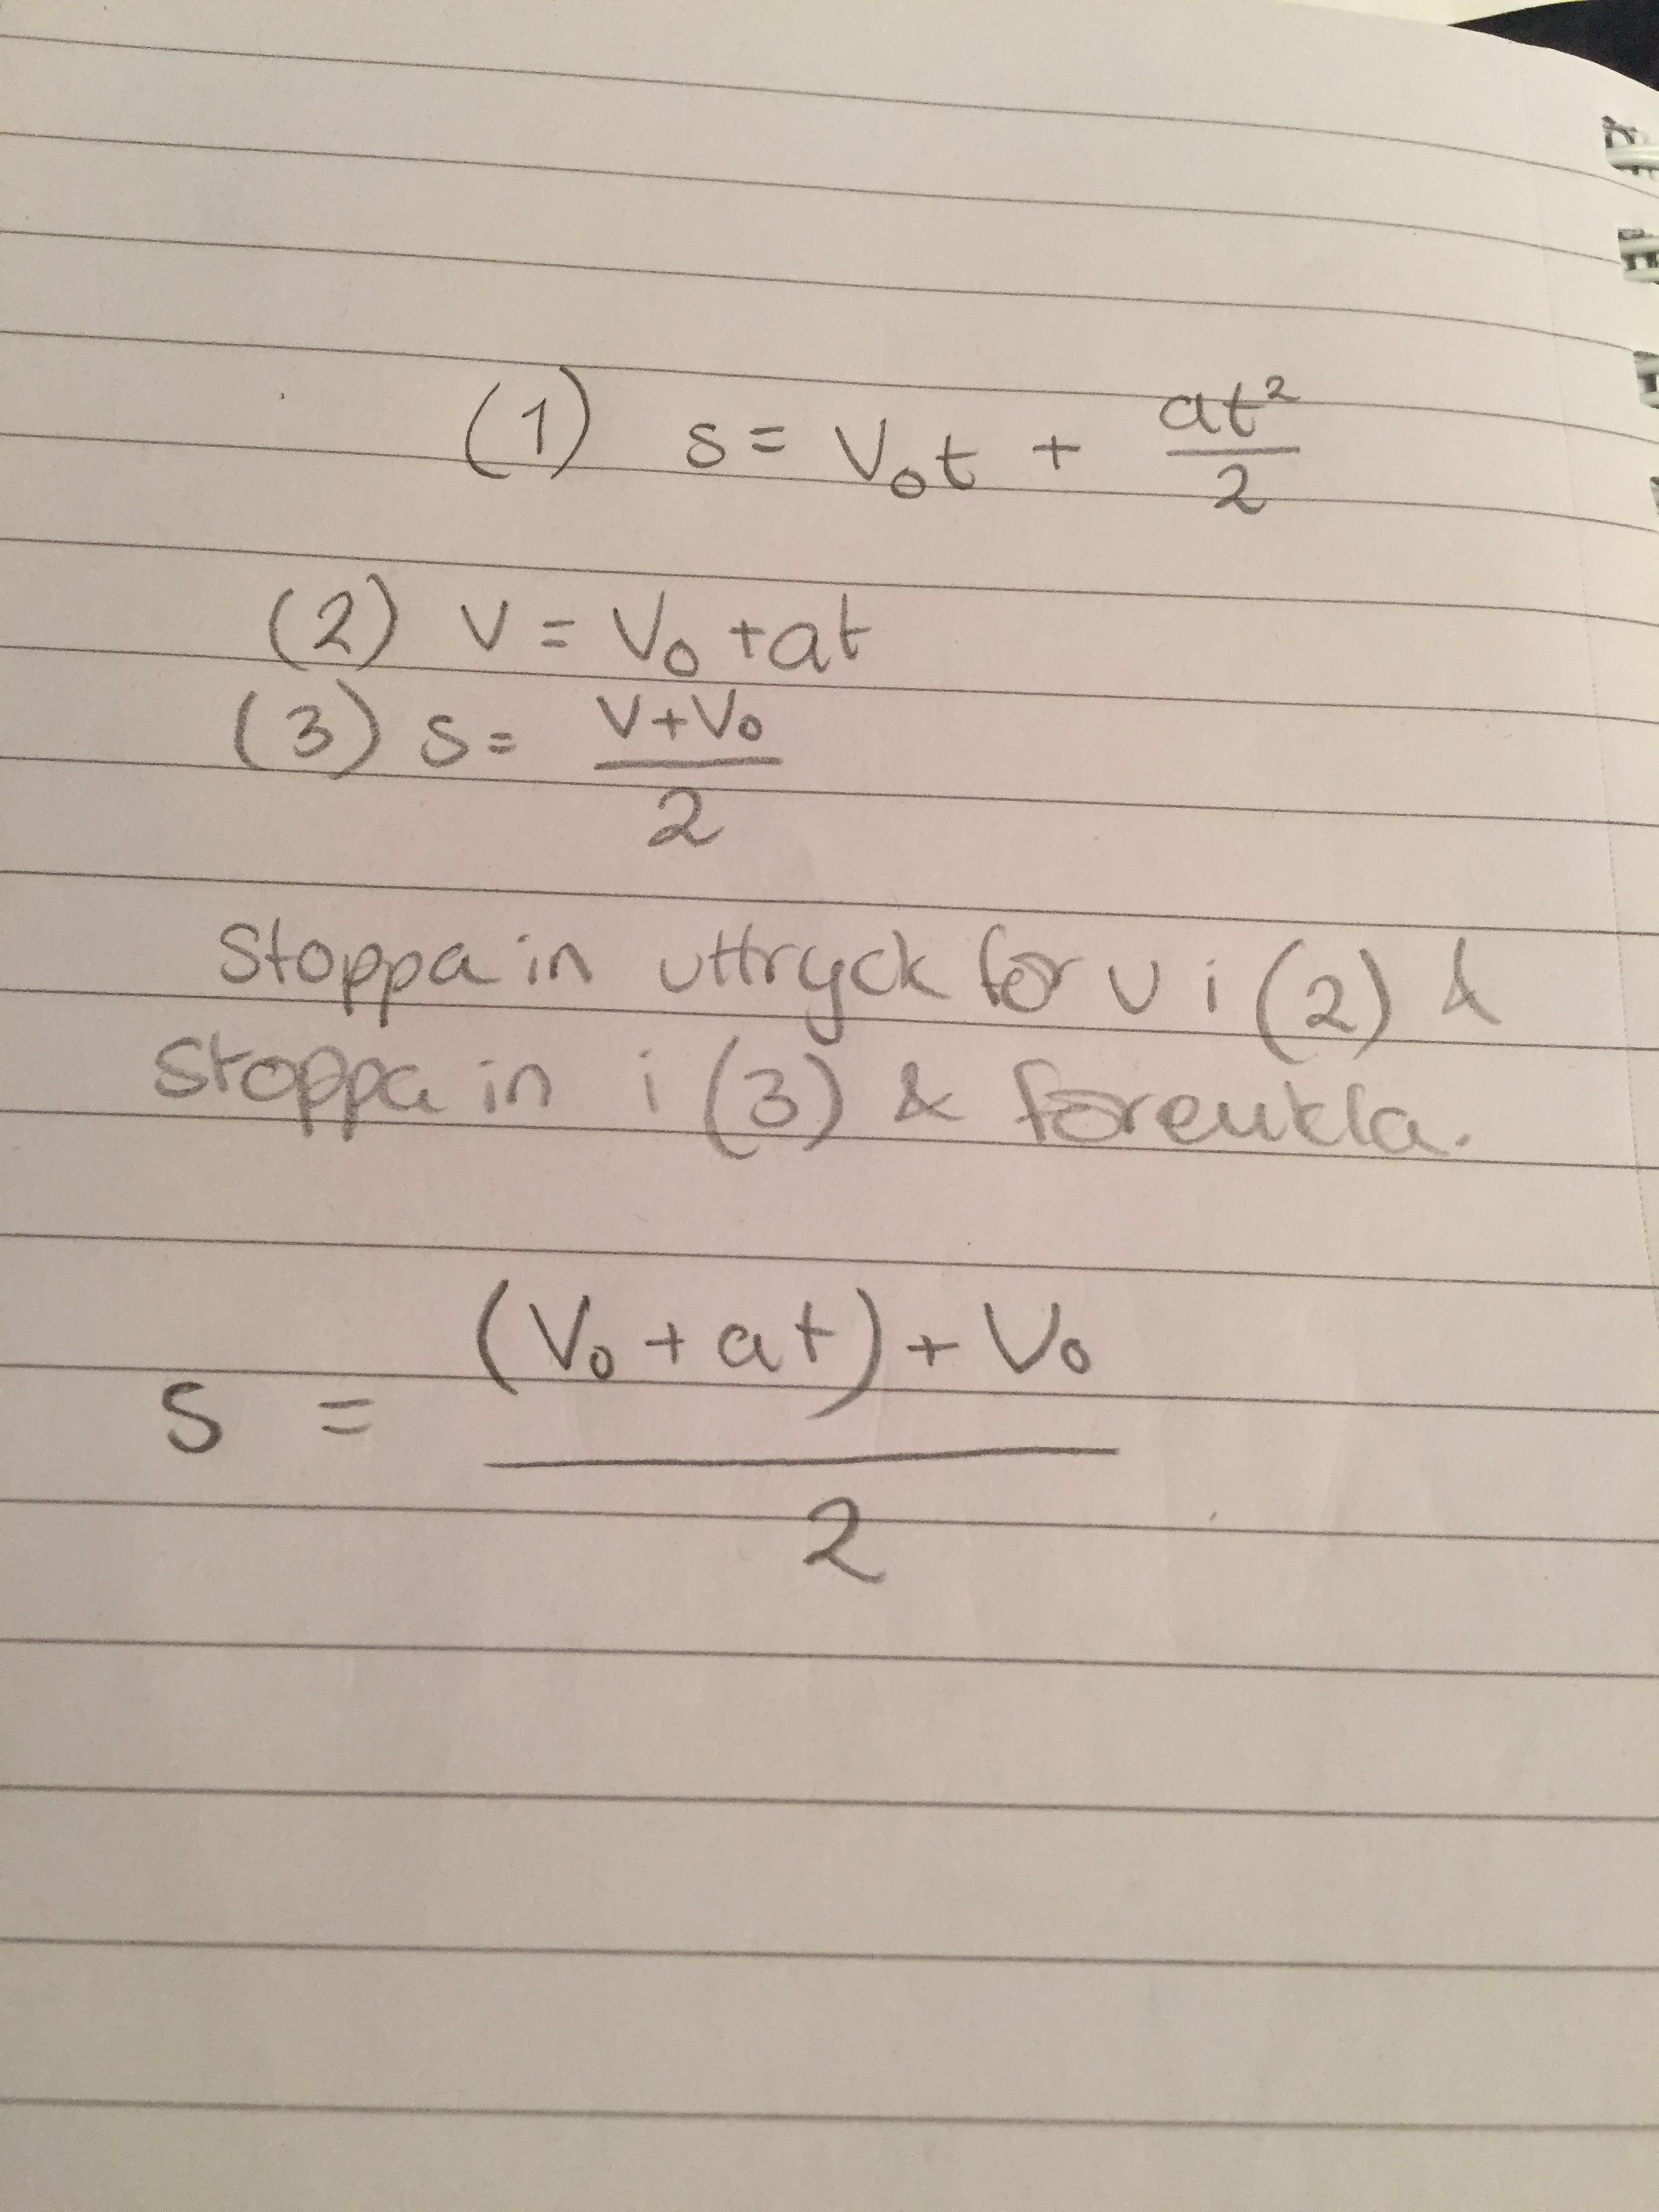 (1) s = V₀t + at²/2
(2) v = V₀ + at
(3) s = V+V₀/2
Stoppa in uttryck för v i (2) &
stoppa in i (3) & förenkla.
S = (V₀ + at) + V₀/2